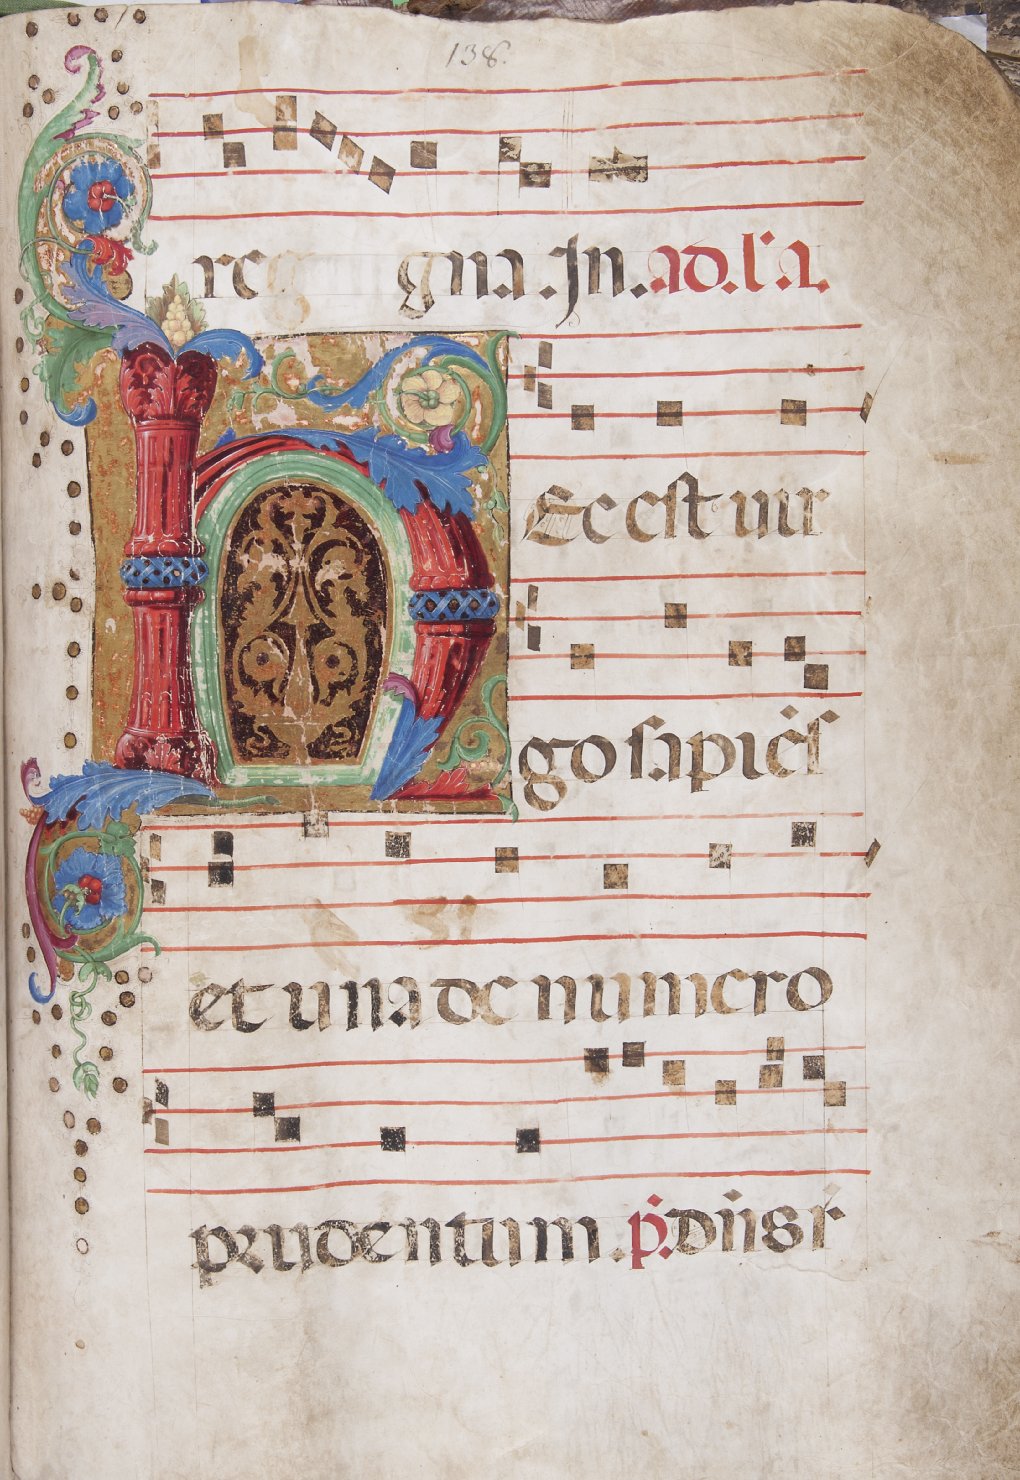 138.
re gna. Jn. ad. l'a.
hEc est uir
go sapiẽs
et una de numero
prudentum. p̃. Dñs r̃